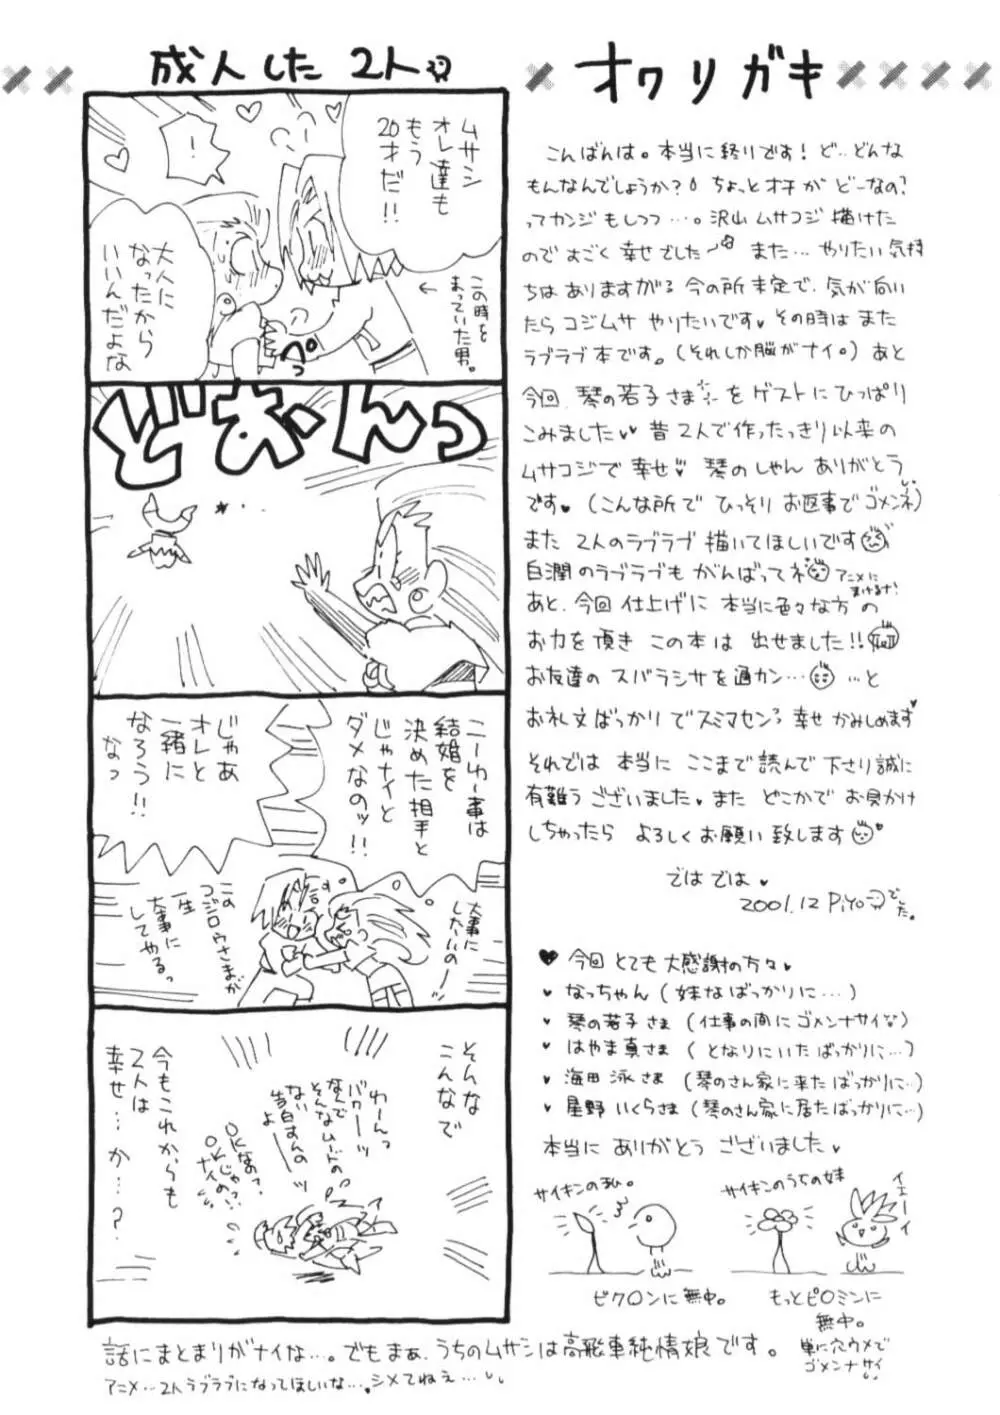 成人した 2人
ムサシ
オレ達も
もう
20才だ!!
!
大人に
なったから
いいんだよな
この時を
まっていた男。
ペっ
どおーんっ
こーゆー事は
結婚を
決めた相手と
じゃナイと
ダメなのッ!!
じゃあ
オレと
一緒に
なろう!!
なっ
大事に
したいの〜
この
コジロウさまが
一生
大事に
してやるっ
そんな
こんなで
わーんっ
バカーッ
なんで
そんなムードの
ない
告白すんの
よーー
OKなの?
OKじゃ
ナイの!?
今もこれからも
2人は
幸せ…か…?
オワリガキ
こんばんは。本当に終りです! ど‥どんな
もんなんでしょうか? ちょっとオチが どーなの?
ってカンジもしつつ…。沢山 ムサコジ 描けた
ので すごく 幸せでした また… やりたい気持
ちは ありますがる 今の所 未定で、気が向い
たら コジムサ やりたいです♥ その時は また
ラブラブ本です。(それしか脳がナイ。) あと
今回、琴の若子さま を ゲストに ひっぱり
こみました♥♥ 昔 2人で作ったっきり以来の
ムサコジで 幸せ♥ 琴のしゃん ありがとう
です♥ (こんな所で ひっそり お返事でゴメンネ)
また 2人のラブラブ 描いてほしいです
白潤のラブラブも がんばってネ アニメに
まけるな!
あと、今回 仕上げに 本当に色々な方の
お力を頂き この本は 出せました!!
お友達の スバラシサを 過カン… …と
お礼文ばっかりでスミマセン 幸せ かみしめます♥
それでは 本当に ここまで読んで 下さり誠に
有難う ございました♥ また どこかで お見かけ
しちゃったら よろしくお願い致します ♥
では では♥
2001.12 Piyo でした。
♥ 今回 とても 大感謝の方々♥
♥ なっちゃん (妹なばっかりに…)
♥ 琴の若子さま (仕事の間にゴメンナサイ)
♥ はやま真さま ( となりにいた ばっかりに…)
♥ 海田 泳さま (琴のさん家に来たばっかりに…)
♥ 星野 いくらさま (琴のさん家に居たばっかりに…)
本当に ありがとう ございました♥
サイキンの私。
サイキンのうちの妹
イエーイ
ピク〇ンに無中。
もっとピ〇ミンに
無中。
単に穴ウメで
ゴメンナサイ
話にまとまりがナイな…。でもまぁ、うちのムサシは高飛車純情娘です。
アニメ…2人ラブラブになってほしいな…。シメてねえ…